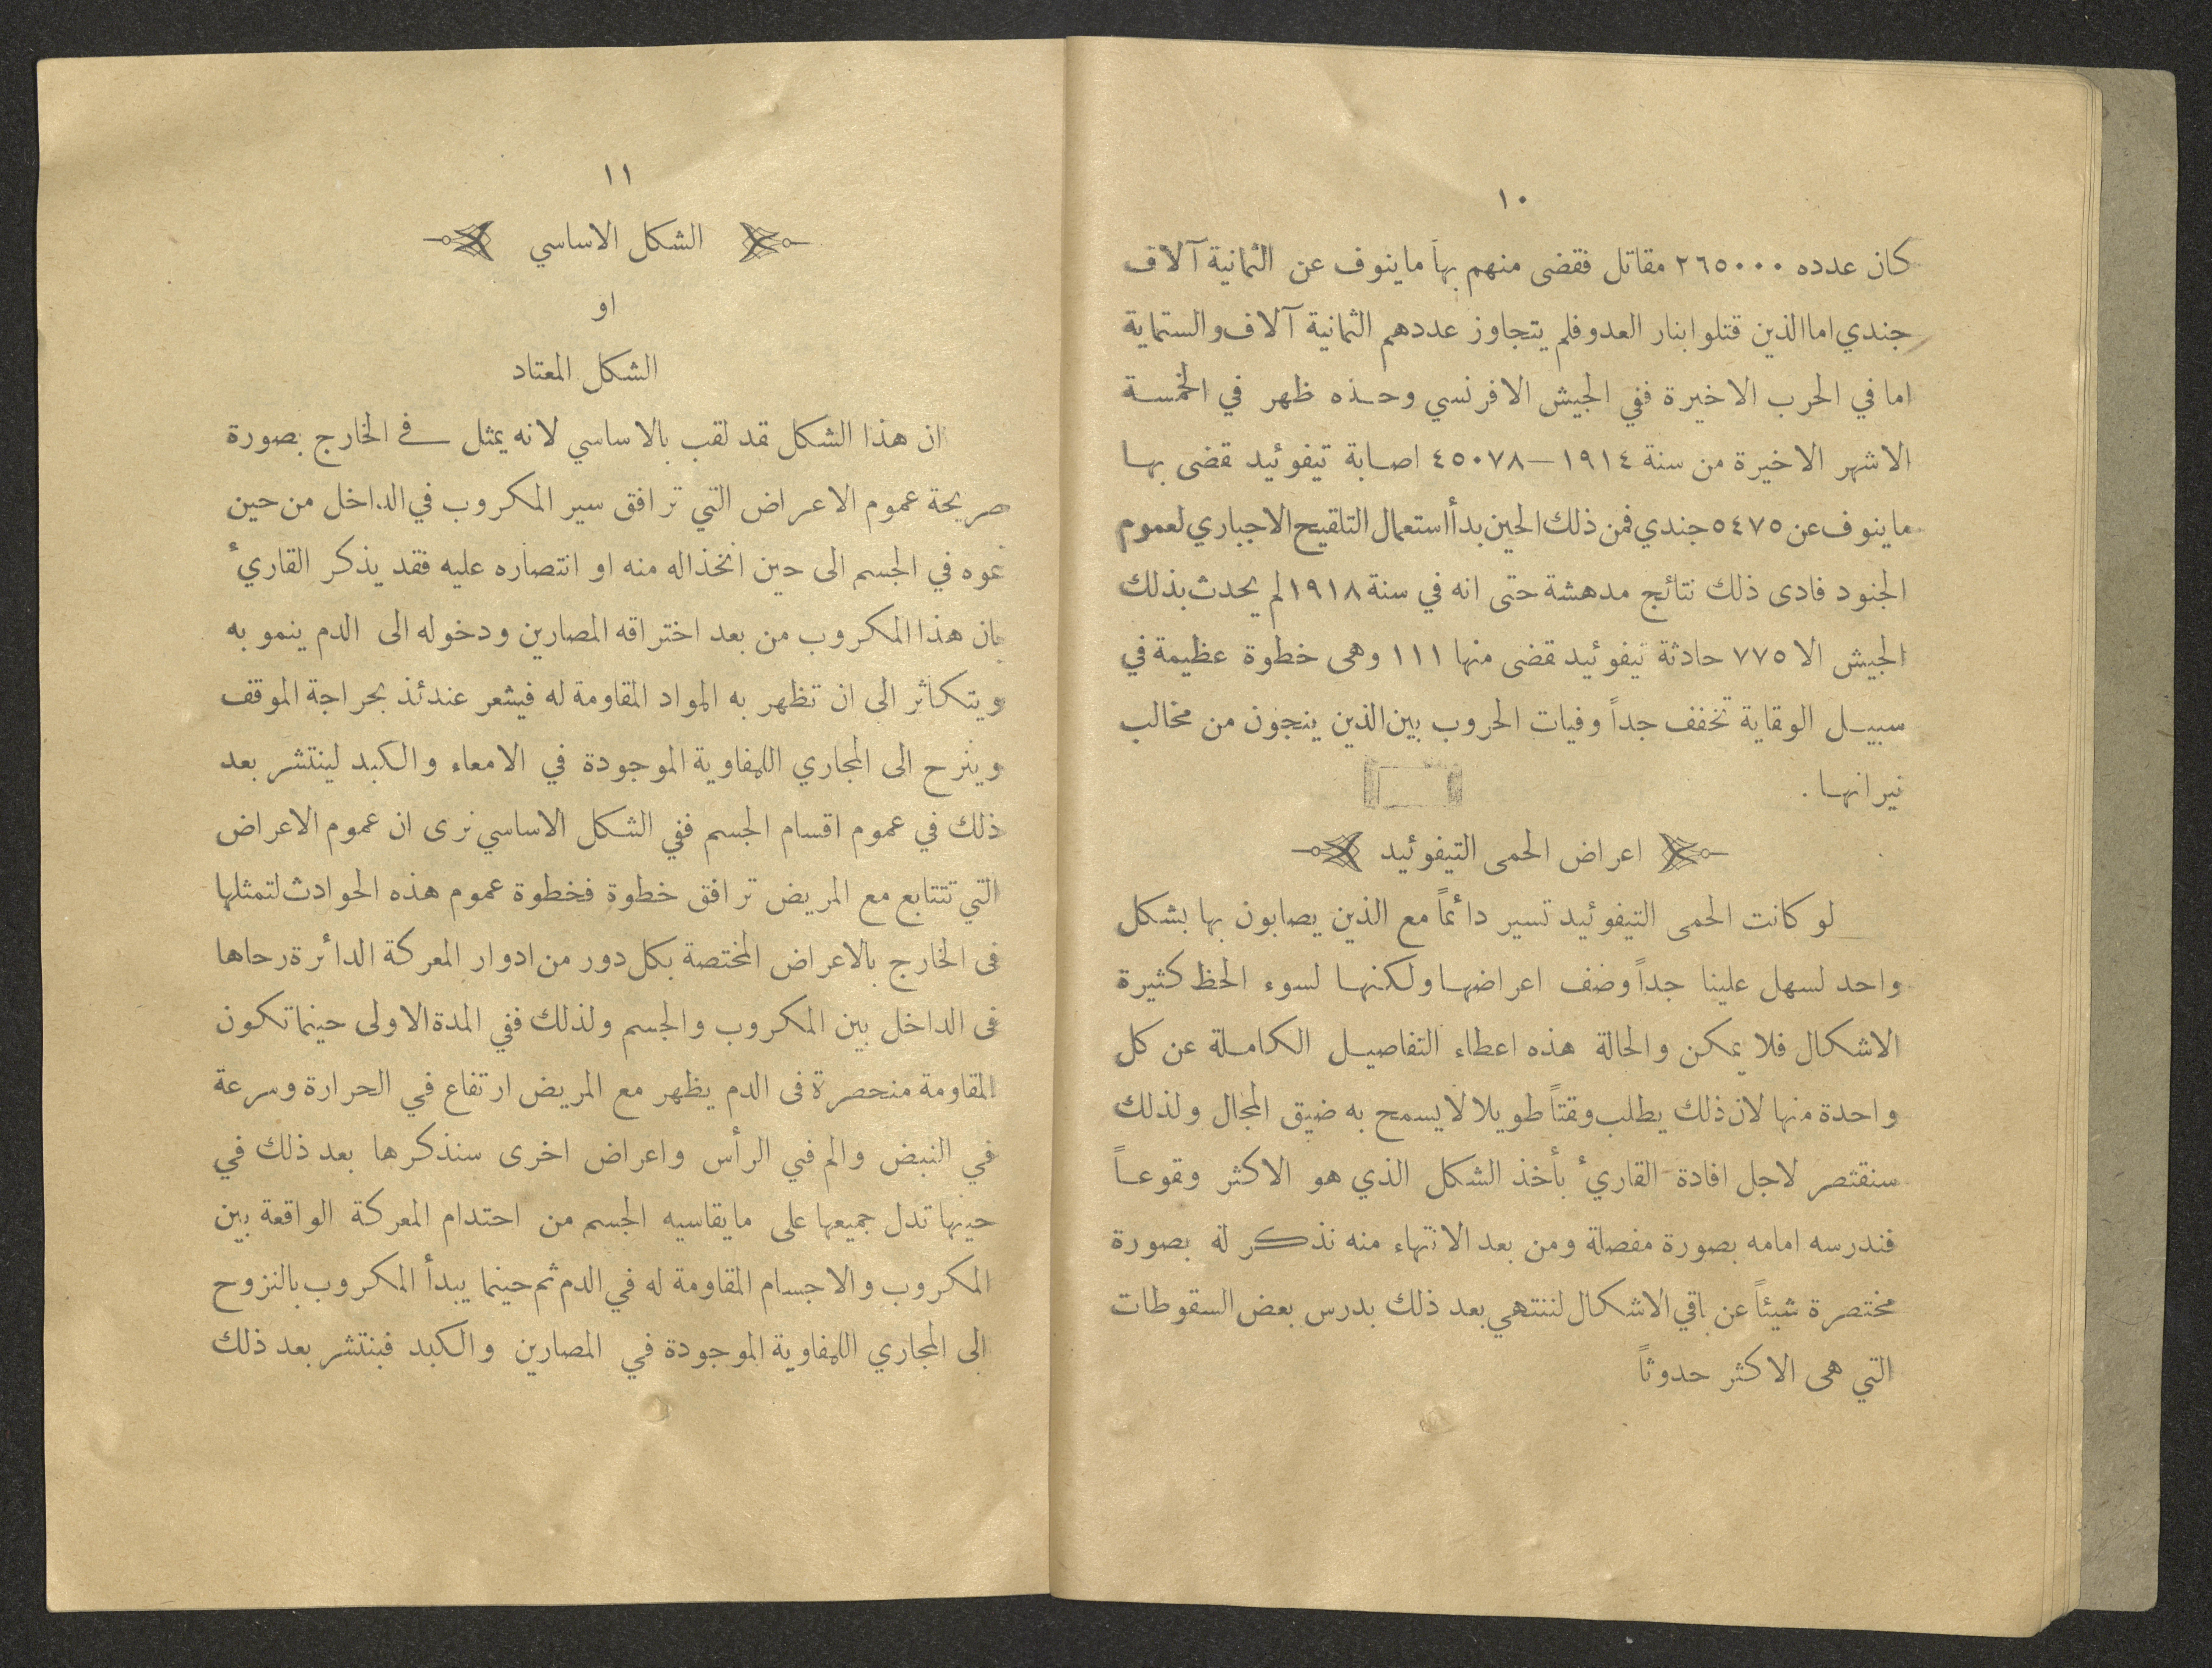 ١٠
كان عدده ٢٦٥٠٠٠ مقاتل فقضى منهم بها ماينوف عن الثمانية آلاف
جندي اما الذين قتلوا بنار العدو فلم يتجاوز عددهم الثمانية آلاف والستماية
اما في الحرب الاخيرة ففي الجيش الافرنسي وحده ظهر في الخمسة
الاشهر الاخيرة من سنة ١٩١٤—٤٥٠٧٨ اصابة تيفوئيد قضى بها
ماينوف عن ٥٤٧٥ جندي فمن ذلك الحين بدأ استعمال التلقيح الاجباري لعموم
الجنود فادى ذلك نتائج مدهشة حتى انه في سنة ١٩١٨ لم يحدث بذلك
الجيش الا ٧٧٥ حادثة تيفوئيد قضى منها ١١١ وهى خطوة عظيمة في
سبيل الوقاية تخفف جداً وفيات الحروب بين الذين ينجون من مخالب
نيرانها .
اعراض الحمى التيفوئيد
لو كانت الحمى التيفوئيد تسير دائماً مع الذين يصابون بها بشكل
واحد لسهل علينا جداً وضف اعراضها ولكنها لسوء الحظ كثيرة
الاشكال فلا يمكن والحالة هذه اعطاء التفاصيل الكاملة عن كل
واحدة منها لان ذلك يطلب وقتاً طويلا لا يسمح به ضيق المجال ولذلك
سنقتصر لاجل افادة القارئ بأخذ الشكل الذي هو الاكثر وقوعاً
فندرسه امامه بصورة مفصلة ومن بعد الانتهاء منه نذكر له بصورة
مختصرة شيئاً عن باقي الاشكال لننتهي بعد ذلك بدرس بعض السقوطات
التي هى الاكثر حدوثاً
١١
الشكل الاساسي
او
الشكل المعتاد
ان هذا الشكل قد لقب بالاساسي لانه يمثل في الخارج بصورة
صريحة عموم الاعراض التي ترافق سير المكروب في الداخل من حين
نموه في الجسم الى حين انخذاله منه او انتصاره عليه فقد يذكر القارئ
بان هذا المكروب من بعد اختراقه المصارين ودخوله الى الدم ينمو به
ويتكاثر الى ان تظهر به المواد المقاومة له فيشعر عندئذ بحراجة الموقف
وينزح الى المجاري اللمفاوية الموجودة في الامعاء والكبد لينتشر بعد
ذلك في عموم اقسام الجسم ففي الشكل الاساسي نرى ان عموم الاعراض
التي تتتابع مع المريض ترافق خطوة فخطوة عموم هذه الحوادث لتمثلها
فى الخارج بالاعراض المختصة بكل دور من ادوار المعركة الدائرة رحاها
فى الداخل بين المكروب والجسم ولذلك ففي المدة الاولى حينما تكون
المقاومة منحصرة فى الدم يظهر مع المريض ارتفاع في الحرارة وسرعة
في النبض والم في الرأس واعراض اخرى سنذكرها بعد ذلك في
حينها تدل جميعها على مايقاسيه الجسم من احتدام المعركة الواقعة بين
المكروب والاجسام المقاومة له في الدم ثم حينما يبدأ المكروب بالنزوح
الى المجاري اللمفاوية الموجودة في المصارين والكبد فينتشر بعد ذلك